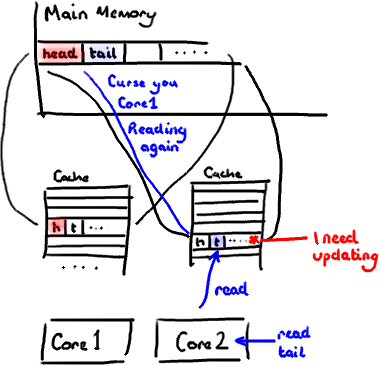 Main Memory
head tail ....
Curse you
Core1
Reading
again
Cache
Cache
h t ...
h t ....*
I need
updating
....
....
read
Core1
Core2
read
tail